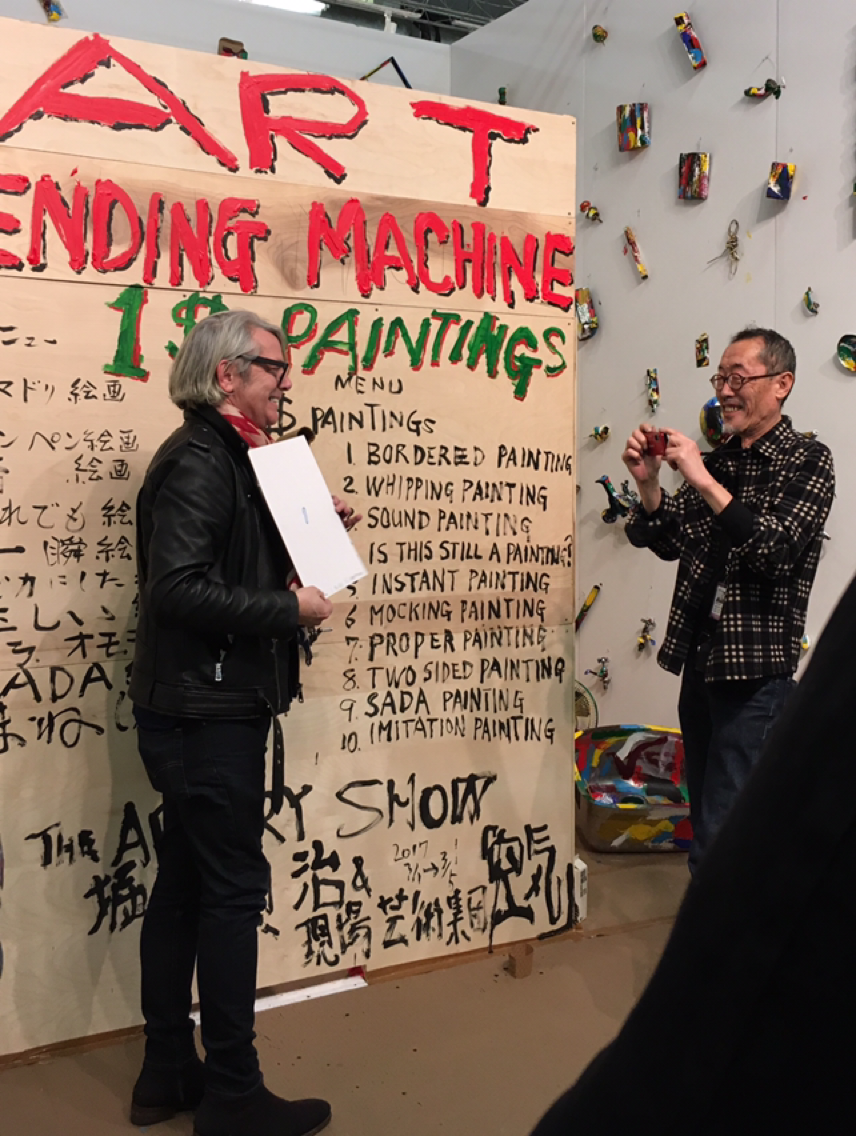 ART
ENDING MACHINE
1$ PAINTINGS
ニュー
MENU
マドリ 絵画
$ PAINTINGS
ペン絵画
1. BORDERED PAINTING
絵画
2. WHIPPING PAINTING
れでも 絵
SOUND PAINTING
瞬 絵
IS THIS STILL A PAINTING?
にした
5 INSTANT PAINTING
しい
6 MOCKING PAINTING
オモ
7. PROPER PAINTING
8. TWO SIDED PAINTING
ADA
9. SADA PAINTING
まね
10. IMITATION PAINTING
THE A RY SHOW
堀 治 &
2017
3/1→3/5
現場 芸術集団